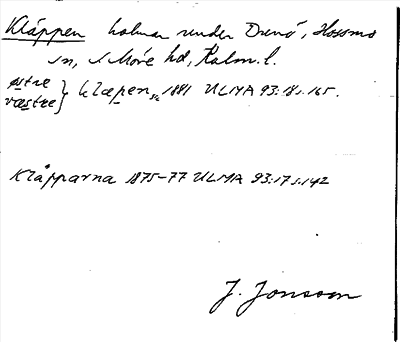 Kläppen holmar under Drenö, Hossmo
sn, S Möre hd, Kalm. l.
østre
væstre } klæpen, sc 1881 ULMA 93:18 s. 165.
Klåpparna 1875-77 ULMA 93:17 s. 142
J. Jonsson